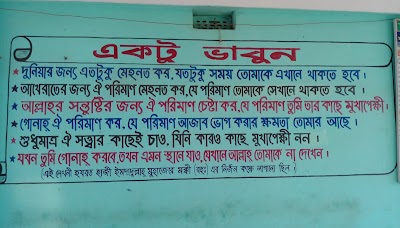 একটু ভাবুন
★ দুনিয়ার জন্য এতটুকু মেহনত কর, যতটুকু সময় তোমাকে এখানে থাকতে হবে।
★ আখেরাতের জন্য ঐ পরিমাণ মেহনত কর, যে পরিমাণ তোমাকে সেখানে থাকতে হবে।
★ আল্লাহর সন্তুষ্টির জন্য ঐ পরিমাণ চেষ্টা কর, যে পরিমাণ তুমি তার কাছে মুখাপেক্ষী।
★ গোনাহ্ ঐ পরিমাণ কর, যে পরিমাণ আজাব ভোগ করার ক্ষমতা তোমার আছে।
★ শুধুমাত্র ঐ সত্ত্বার কাছেই চাও, যিনি কারও কাছে মুখাপেক্ষী নন।
★ যখন তুমি গোনাহ্ করবে, তখন এমন স্থানে যাও, যেখানে আল্লাহ্ তোমাকে না দেখেন।
(এই লেখনী হযরত হাজী ইমদাদুল্লাহ্ মুহাজেরে মক্কী (রহঃ) এর নির্জন কক্ষে লাগানো ছিল।)